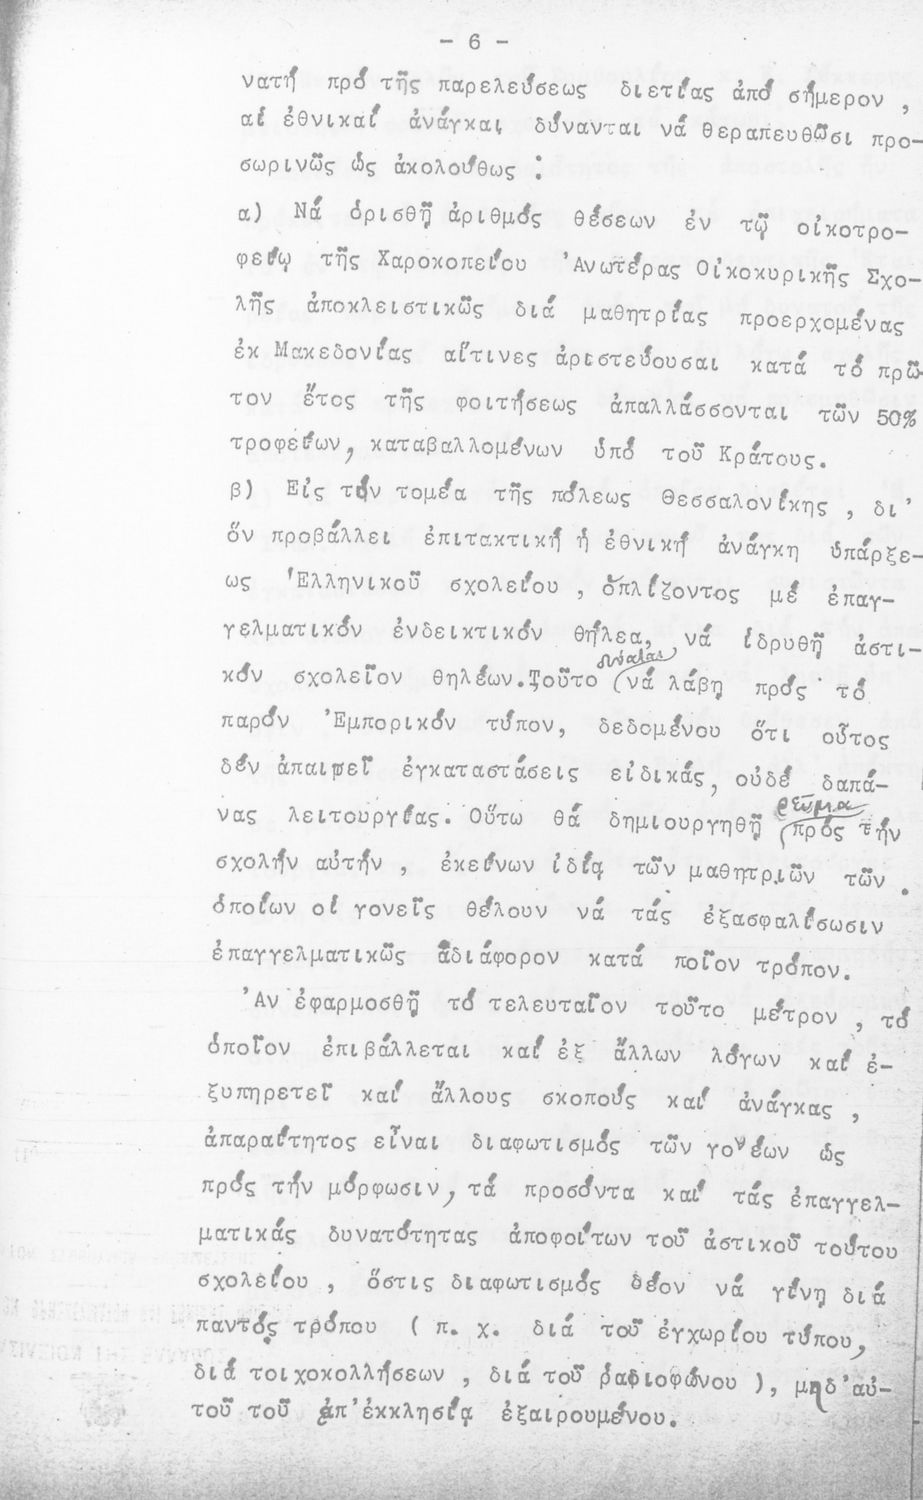 - 6 -
νατή πρό τῆς παρελεύσεως διετίας ἀπό σήμερον ,
αἱ ἐθνικαί ἀνάγκαι δύνανται νά θεραπευθῶσι προ-
σωρινῶς ὡς ἀκολούθως :
α) Νά ὁρισθῇ ἀριθμός θέσεων ἐν τῷ οἰκοτρο-
φείῳ τῆς Χαροκοπείου 'Ανωτέρας Οἰκοκυρικῆς Σχο-
λῆς ἀποκλειστικῶς διά μαθητρίας προερχομένας
ἐκ Μακεδονίας αἵτινες ἀριστεύουσαι κατά τό πρῶ-
τον ἔτος τῆς φοιτήσεως ἀπαλλάσσονται τῶν 50%
τροφείων, καταβαλλομένων ὑπό τοῦ Κράτους.
β) Εἰς τήν τομέα τῆς πόλεως Θεσσαλονίκης , δι'
ὅν προβάλλει ἐπιτακτική ἡ ἐθνική ἀνάγκη ὑπάρξε-
ως 'Ελληνικοῦ σχολείου , ὁπλίζοντος μέ ἐπαγ-
γελματικόν ἐνδεικτικόν θήλεα, νά ἱδρυθῇ ἀστι-
κόν σχολεῖον θηλέων.Τοῦτο δύναται νά λάβῃ πρός τό
παρόν 'Εμπορικόν τύπον, δεδομένου ὅτι οὗτος
δέν ἀπαιτεῖ ἐγκαταστάσεις εἰδικάς, οὐδέ δαπά-
νας λειτουργίας. Οὕτω θά δημιουργηθῇ ρεῦμα πρός τήν
σχολήν αὐτήν , ἐκείνων ἰδίᾳ τῶν μαθητριῶν τῶν
ὁποίων οἱ γονεῖς θέλουν νά τάς ἐξασφαλίσωσιν
ἐπαγγελματικῶς ἀδιάφορον κατά ποῖον τρόπον.
'Αν ἐφαρμοσθῇ τό τελευταῖον τοῦτο μέτρον , τό
ὁποῖον ἐπιβάλλεται καί ἐξ ἄλλων λόγων καί ἐ-
ξυπηρετεῖ καί ἄλλους σκοπούς καί ἀνάγκας ,
ἀπαραίτητος εἶναι διαφωτισμός τῶν γονέων ὡς
πρός τήν μόρφωσιν, τά προσόντα καί τάς ἐπαγγελ-
ματικάς δυνατότητας ἀποφοίτων τοῦ ἀστικοῦ τούτου
σχολείου , ὅστις διαφωτισμός δέον νά γίνῃ διά
παντός τρόπου ( π. χ. διά τοῦ ἐγχωρίου τύπου,
διά τοιχοκολλήσεων , διά τοῦ ραδιοφώνου ), μηδ'αὐ-
τοῦ τοῦ ἀπ'ἐκκλησίᾳ ἐξαιρουμένου.